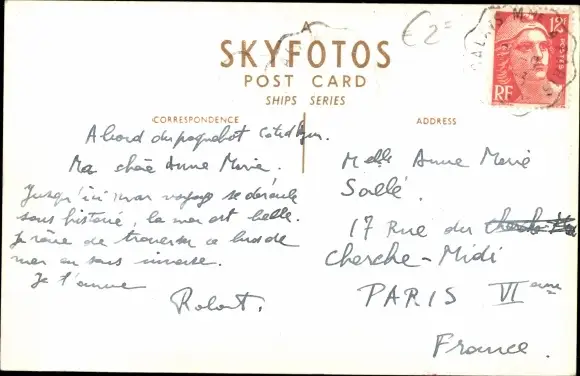 € 2=
SKYFOTOS
POST CARD
SHIPS SERIES
CORRESPONDENCE
ADDRESS
12F
POSTES
RF
CALAIS
A bord du paquebot Côte d'Azur.
Ma chère Anne Marie.
Jusqu'ici mon voyage se déroule
sans histoire, la mer est belle.
Je rêve de traverser ce bras de
mer en sens inverse.
Je t'aime
Robert.
Melle Anne Marie
Sallé.
17 Rue du
Cherche-Midi
PARIS VIème
France.